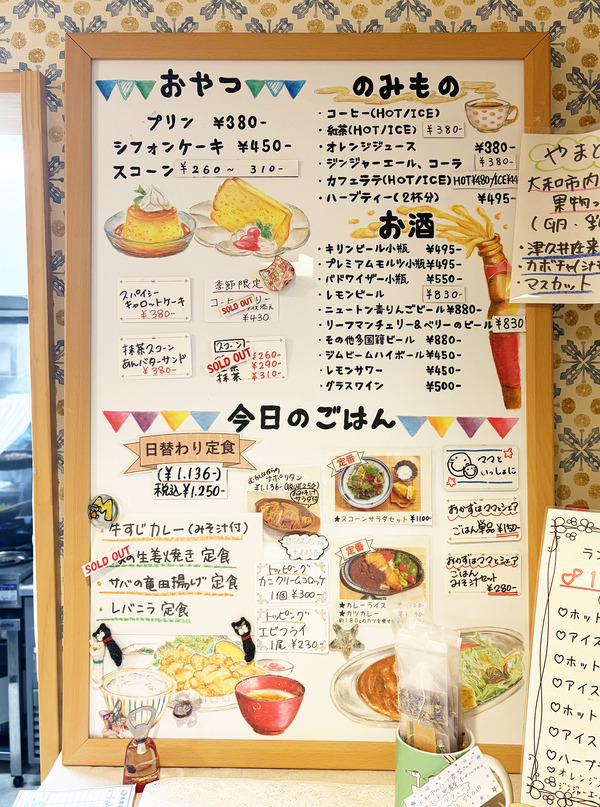 おやつ
プリン ¥380-
シフォンケーキ ¥450-
スコーン ¥260～310-
スパイシー
キャロットケーキ
¥380-
季節限定
SOLD OUT
¥430
抹茶スコーン
あんバターサンド
¥380-
スコーン
SOLD OUT
¥260-
¥290-
抹茶 ¥310-
のみもの
・コーヒー(HOT/ICE)
・紅茶(HOT/ICE) ¥380-
・オレンジジュース ¥380-
・ジンジャーエール、コーラ ¥380-
・カフェラテ(HOT/ICE) HOT¥480/ICE¥4
・ハーブティー(2杯分) ¥495-
お酒
・キリンビール小瓶 ¥495-
・プレミアムモルツ小瓶¥495-
・バドワイザー小瓶 ¥550-
・レモンビール ¥830-
・ニュートン青りんごビール¥880-
・リーフマンチェリー&ベリーのビール¥830
・その他多国籍ビール ¥880-
・ジムビームハイボール¥450-
・レモンサワー ¥450-
・グラスワイン ¥500-
今日のごはん
日替わり定食
(¥1.136-)
税込¥1.250-
・牛すじカレー(みそ汁付)
SOLD OUT
の生姜焼き 定食
・サバの竜田揚げ 定食
・レバニラ 定食
ナポリタン
¥1.136-
トッピング
カニクリームコロッケ
1個 ¥300-
トッピング
エビフライ
1尾 ¥230-
定番
★スコーンサラダセット ¥1100-
定番
★カレーライス
★カツカレー
ママと
いっしょに
おかずはママとシェア
ごはん単品 ¥150-
おかずはママとシェア
ごはん
みそ汁セット
¥280-
やまと
大和市内
果物
・津久井在来
・カボチャ
マスカット
ラン
♡ホット
♡アイス
♡ホット
♡アイス
♡ホット
♡アイス
♡ハーブ
オレンジ
ジンジャーエール